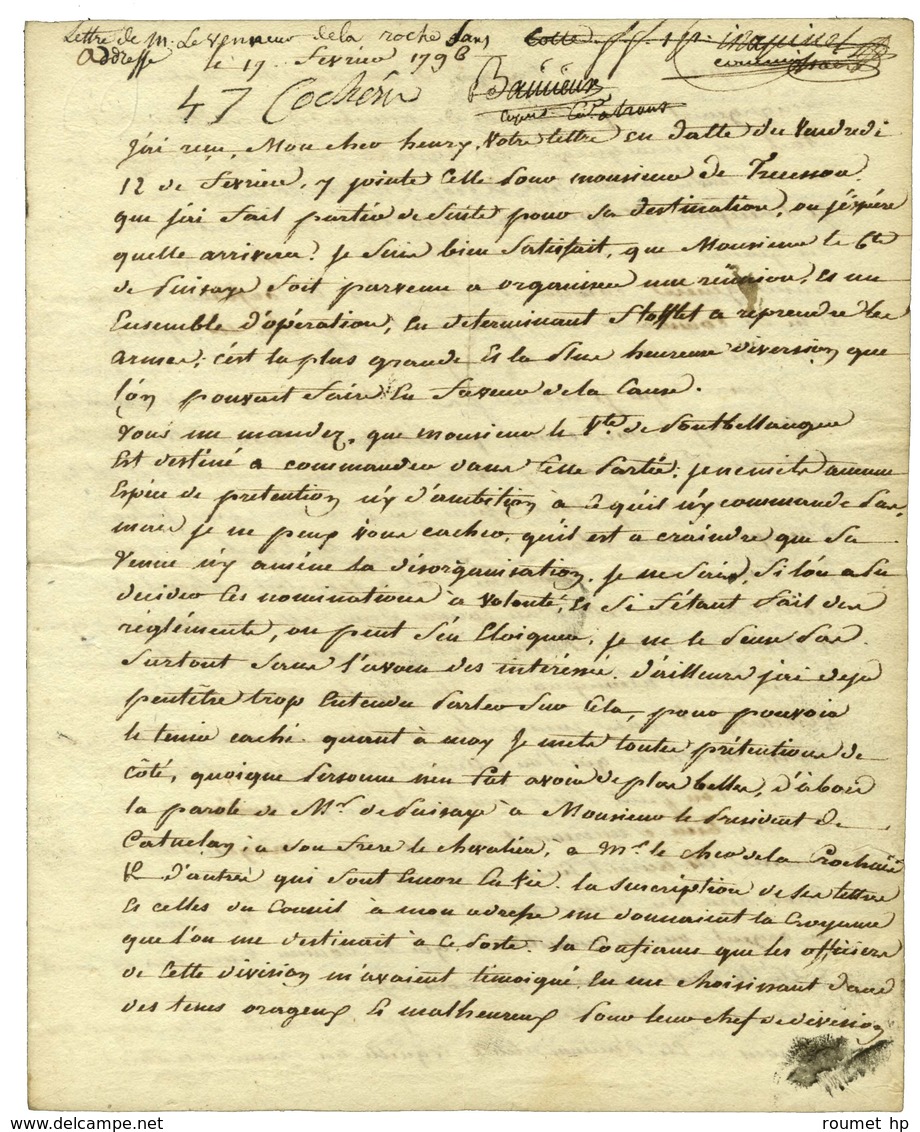 Lettre de M. Le Venneur dela roche sans
addresse
le 17 fevrier 1796
47 Cochery
j'ai reçu, Mon cher henry, votre lettre en datte du vendredi
12 de fevrier, y jointe celle pour monsieur de
que j'ai fait partir de suite pour sa destination, ou j'éspére
quelle arrivera. je suis bien satisfait, que Monsieur le Cte
de puisaye soit parvenu a organiser une réunion, et un
Ensemble d'opération, en determinant Stofflet a reprendre les
armes; c'ést la plus grande et la plus heureuse diversion que
l'on pouvait faire en faveur de la Cause.
vous me mandez, que monsieur le Vte. de pontbellanger
Est destiné a commander dans cette partie: je ne mets aucune
espéce de pretention n'y d'ambition à ce qu'il n'y commande pas,
mais je ne peux vous cacher, qu'il est a craindre que sa
venue n'y améne la désorganisation. je ne sais, si l'on a pu
decider les nominations à volonté, et si s'étant fait des
réglements, on peut s'en Eloigner; je ne le pense pas
surtout sans l'aveu des interéssé. d'ailleurs j'ai deja
peutêtre trop Entendu parler sur cela, pour pouvoir
le tenir caché. quant à moy je mets toutes prétentions de
côté, quoique personne n'en put avoir de plus belles, d'abord
la parole de Mr. de puisaye à Monsieur le president de
Catuelan; a son frere le chevalier, à Mr. le cher de la Rochaïe
& d'autres qui sont Encore En vie. la suscription de ses lettres
Et celles du Conseil à mon adresse me donnaient la croyance
que l'on me destinait à ce poste. la Confiance que les officiers
de cette division m'avaient témoigné en me choisissant dans
des tems orageux Et malheureux pour leur chef de division
roumet hp